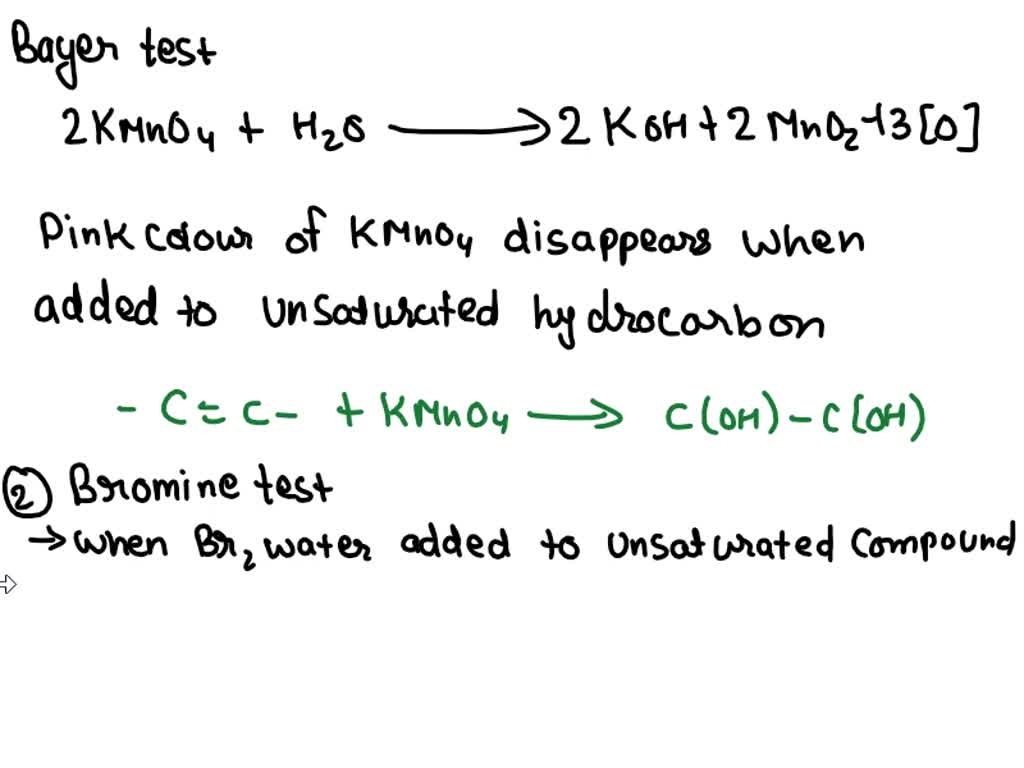 Bayer test
2KMnO₄ + H₂O ⟶ 2KOH + 2MnO₂ + 3[O]
Pink colour of KMnO₄ disappears when
added to unsaturated hydrocarbon
- C = C - + KMnO₄ ⟶ C(OH) - C(OH)
② Bromine test
→ when Br₂ water added to unsaturated compound